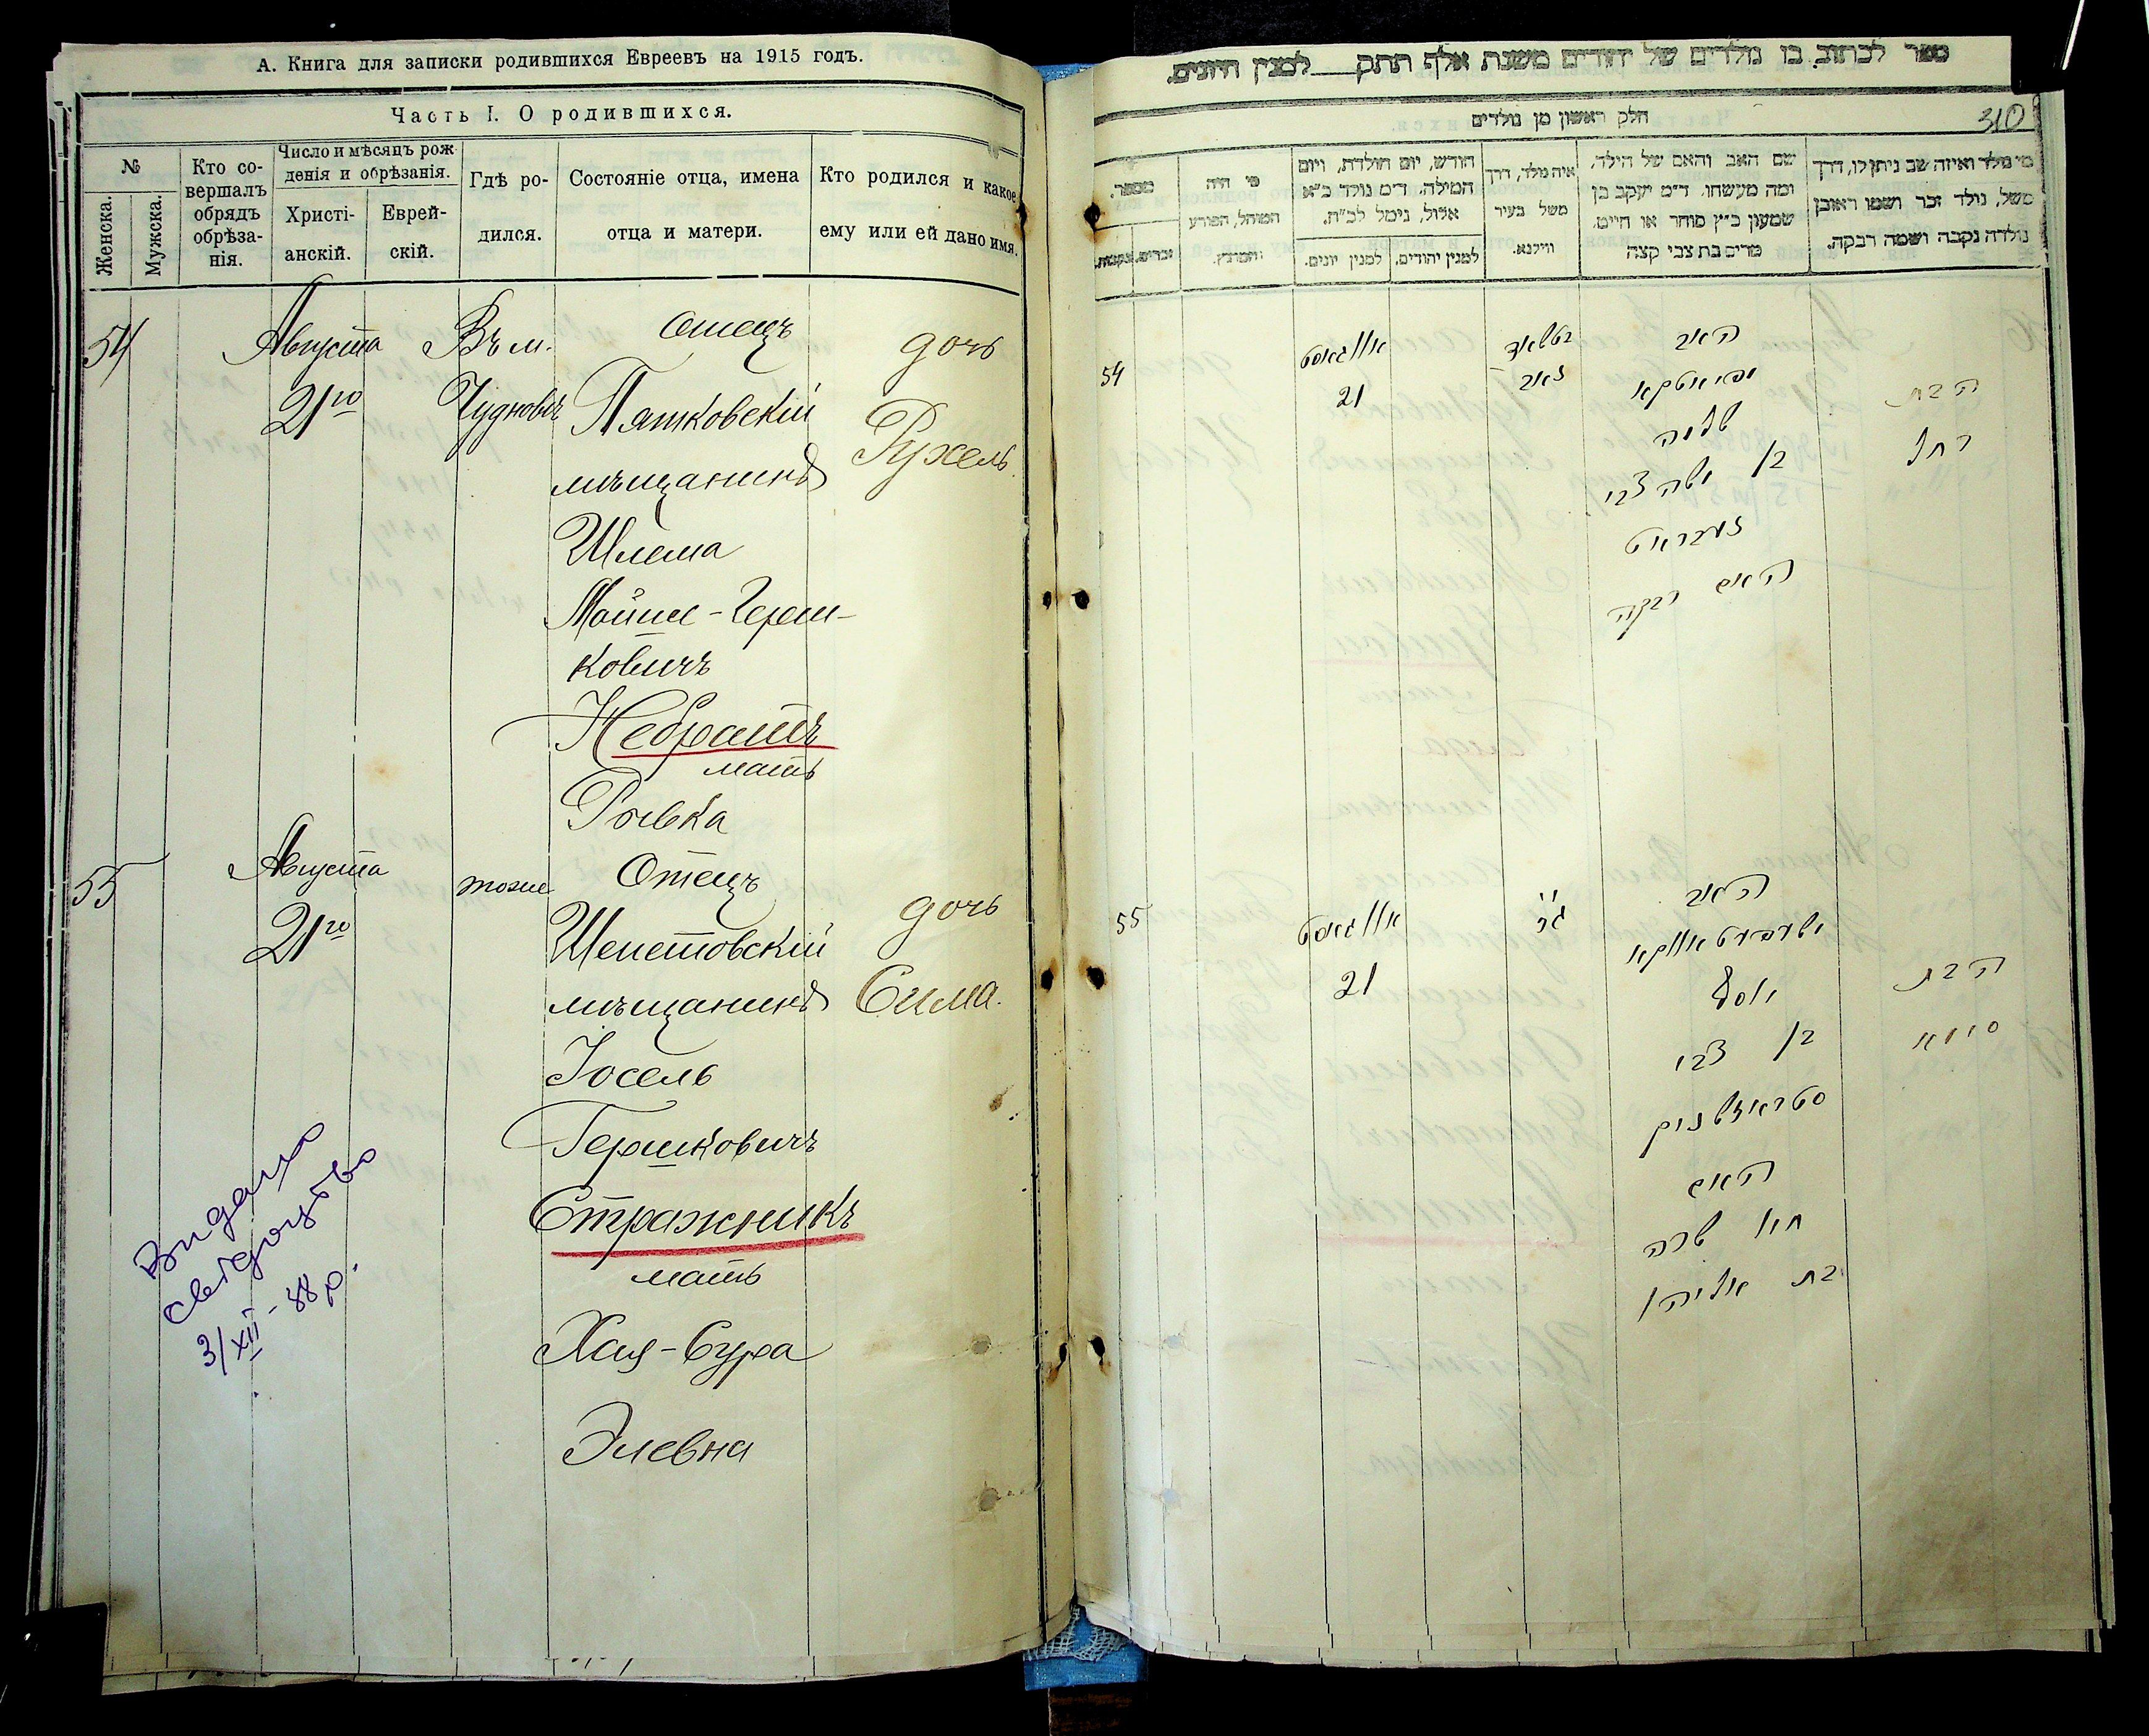 А. Книга для записки родившихся Евреевъ на 1915 годъ.
Часть I. О родившихся.
№
Женска.
Мужска.
Кто со-
вершалъ
обрядъ
обрѣза-
нія.
Число и мѣсяцъ рож
денія и обрѣзанія.
Христі-
анскій.
Еврей-
скій.
Гдѣ ро-
дился.
Состояніе отца, имена
отца и матери.
Кто родился и какое
ему или ей дано имя.
54
Августа
21го
Въ м.
Чудновѣ
Отецъ
Пятковскій
мѣщанинъ
Шлема
Мойше-Герш-
ковичъ
Небратъ
мать
Ривка
дочь
Рухель
55
Августа
21го
тоже
Отецъ
Шепетовскій
мѣщанинъ
Іосель
Гершковичъ
Стражникъ
мать
Хая-Сура
Элевна
дочь
Сима.
Видано
свідоцтво
3/XII-88 р.
ספר לכתוב בו נולדים של יהודים משנת אלף תתק למנין היונים.
חלק ראשון מן נולדים
310
מי נולד ואיזה שב ניתן לו, דרך
משל, נולד זכר ושמו ראובן
נולדה נקבה ושמה רבקה.
שם האב והאם של הילד,
ומה מעשהו. ד״מ יעקב בן
שמעון כ״ץ סוחר או חיים.
מרים בת צבי קצה
איה נולד, דרך
משל בעיר
ווילנא.
חודש, יום הולדת, ויום
המילה. ד״מ נולד כ״א
אלול, נימל לכ״ת.
למנין יהודים.
למנין יונים.
מי היה
המוהל, הפורע
והמוצץ.
מספר.
זכרים.
נקבות.
54
אווגאסט
21
האב
שלמה
בן משה צבי
נעבראט
האם רבקה
הבת
רחל
55
אווגאסט
21
האב
יוסף
בן צבי
סטראזשניק
האם
חיה שרה
בת אליהו
הבת
סימא